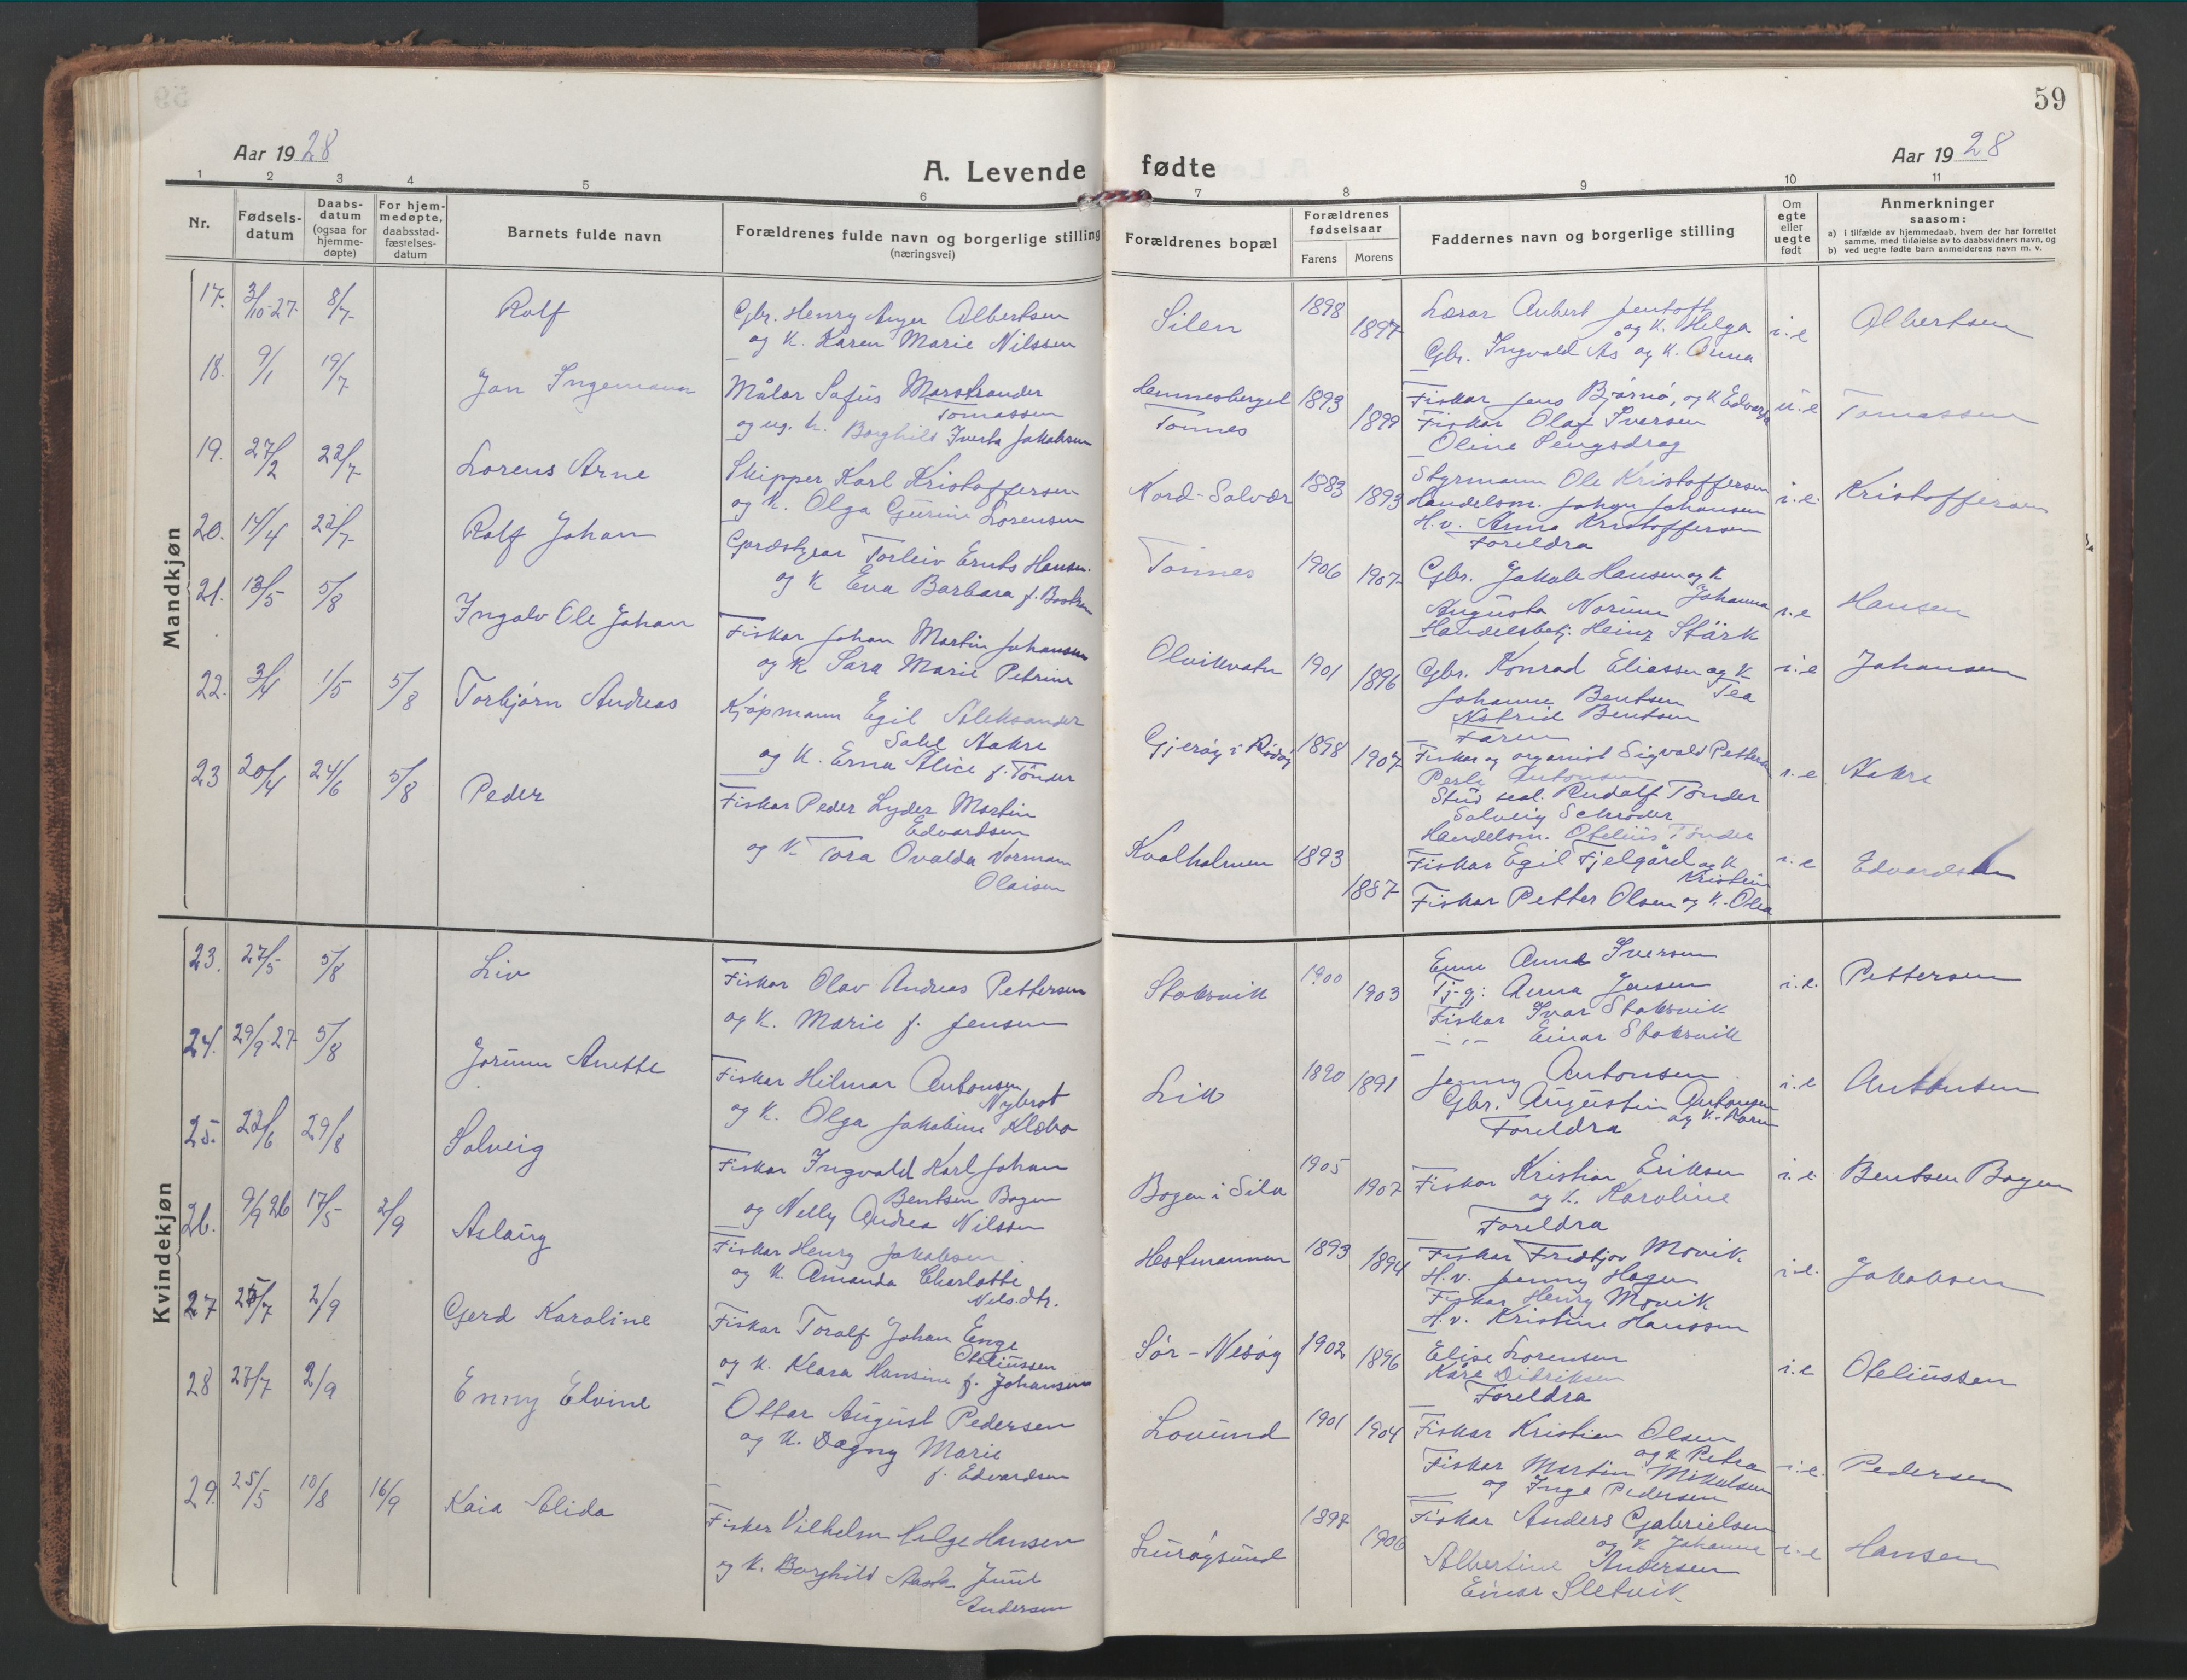 59
Aar 1928
A. Levende fødte
Aar 1928
1 2 3 4 5 6 7 8 9 10 11
Nr.
Fødsels-
datum
Daabs-
datum
(ogsaa for
hjemme-
døpte)
For hjem-
medøpte,
daabsstad-
fæstelses-
datum
Barnets fulde navn
Forældrenes fulde navn og borgerlige stilling
(næringsvei)
Forældrenes bopæl
Forældrenes
fødselsaar
Farens Morens
Faddernes navn og borgerlige stilling
Om
egte
eller
uegte
født
Anmerkninger
saasom:
a) i tilfælde av hjemmedaab, hvem der har forrettet
samme, med tilføielse av to daabsvidners navn, og
b) ved uegte fødte barn anmelderens navn m. v.
Mandkjøn
17. 3/10-27 8/7 Rolf
Gbr. Henry Albertsen
og k. Karen Marie Nilssen
Silen 1898 1897
Lærar Aubert Jentoft
og k. Helga
Gbr. Ingvald Ås og k. Anna
i.e Albertsen
18. 9/1 19/7 Jan Ingemann
Målar Sofus Marstrander
Tomassen
og ug. k. Borghild Iverta Jakobsen
Hemnesberget
Tonnes 1893 1899
Fiskar Jens Bjørnø, og k Edvarda
Fiskar Olaf Iversen
Oline Lengsdrag
u.e Tomassen
19. 27/2 22/7 Lorens Arne
Skipper Karl Kristoffersen
og k. Olga Gurine Lorensen
Nord-Solvær 1883 1893
Styrmann Ole Kristoffersen
Handelsm. Johan Johansen
H.v. Anna Kristoffersen
Foreldra
i.e. Kristoffersen
20. 14/4 22/7 Rolf Johan
Torleiv Ernts Hansen
og k Eva Barbara f.
Tonnes 1906 1907
Gbr. Jakob Hansen og k
Johanna
Augusta Norum
Handelsbetj. Heinz Stärk
i.e Hansen
21. 13/5 5/8 Ingolv Ole Johan
Fiskar Johan Martin Johansen
og k Sara Marie Petrine
Olvikvatn 1901 1896
Gbr. Konrad Eliassen og k
Tea
Johanne Bentsen
Astrid Bentsen
Faren
i.e Johansen
22. 3/4 1/5 5/8 Torbjørn Andreas
Kjøpmann Egil Aleksander
Aakre
og k. Erna Alice f. Tønder
Gjerøy i Rødøy 1898 1907
Fiskar og organist Sigvald Pettersen
Perly Antonsen
Stud real. Rudolf Tønder
Solveig Schrøder
Handelsm. Otelius Tønder
i.e Aakre
23 20/4 24/6 5/8 Peder
Fiskar Peder Lyder Martin
Edvardsen
og k. Tora Ovalda Normann
Olaisen
Kvalholmen 1893 1887
Fiskar Egil Fjelgård og k
Kristine
Fiskar Petter Olsen og k. Olea
i.e Edvardsen
Kvindekjøn
23. 27/5 5/8 Liv
Fiskar Olav Andreas Pettersen
og k. Marie f. Jensen
Stoksvik 1900 1903
Anne Iversen
Tj.gj: Anna Jensen
Fiskar Ivar Stoksvik
-"- Einar Stoksvik
i.e. Pettersen
24. 29/9 27 5/8 Jorunn Anette
Fiskar Hilmar Antonsen
Nybrot
og k. Olga Jakobine Klæbo
Lik 1890 1891
Jenny Antonsen
Gbr. Augustin Antonsen
og k. Karen
Foreldra
i.e Antonsen
25. 22/6 29/8 Solveig
Fiskar Ingvald Karl Johan
Bentsen Bogen
og Nelly Andrea Nilssen
Bogen i Sila 1905 1907
Fiskar Kristian Eriksen
og k. Karoline
Foreldra
i.e. Bentsen Bogen
26. 9/9 26 17/5 2/9 Aslaug
Fiskar Henry Jakobsen
og k. Amanda Charlotte
Nilsdtr.
Hestmannen 1893 1894
Fiskar Fridtjov Movik.
H.v. Jenny Hagen
Fiskar Henry Movik
H.v. Kristine Hanssen
i.e. Jakobsen
27 25/7 2/9 Gerd Karoline
Fiskar Toralf Johan Enge
Oteliussen
og k. Klara Hansine f. Johansen
Sør-Nesøy 1902 1896
Elise Lorensen
Kåre Didriksen
Foreldra
i.e Oteliussen
28 27/7 2/9 Enny Elvine
Ottar August Pedersen
og k. Dagny Marie
f. Edvardsen
Lovund 1901 1904
Fiskar Kristian Olsen
og k Petra
Fiskar Martin Mikalsen
og Inga Pedersen
i.e. Pedersen
29. 25/5 10/8 16/9 Kaia Alida
Fisker Vilhelm Helge Hansen
og k. Borghild Juul
Andersen
Lurøysund 1897 1906
Fiskar Anders Gabrielsen
og k Johanne
Albertine Andersen
Einar Sletvik.
i.e Hansen